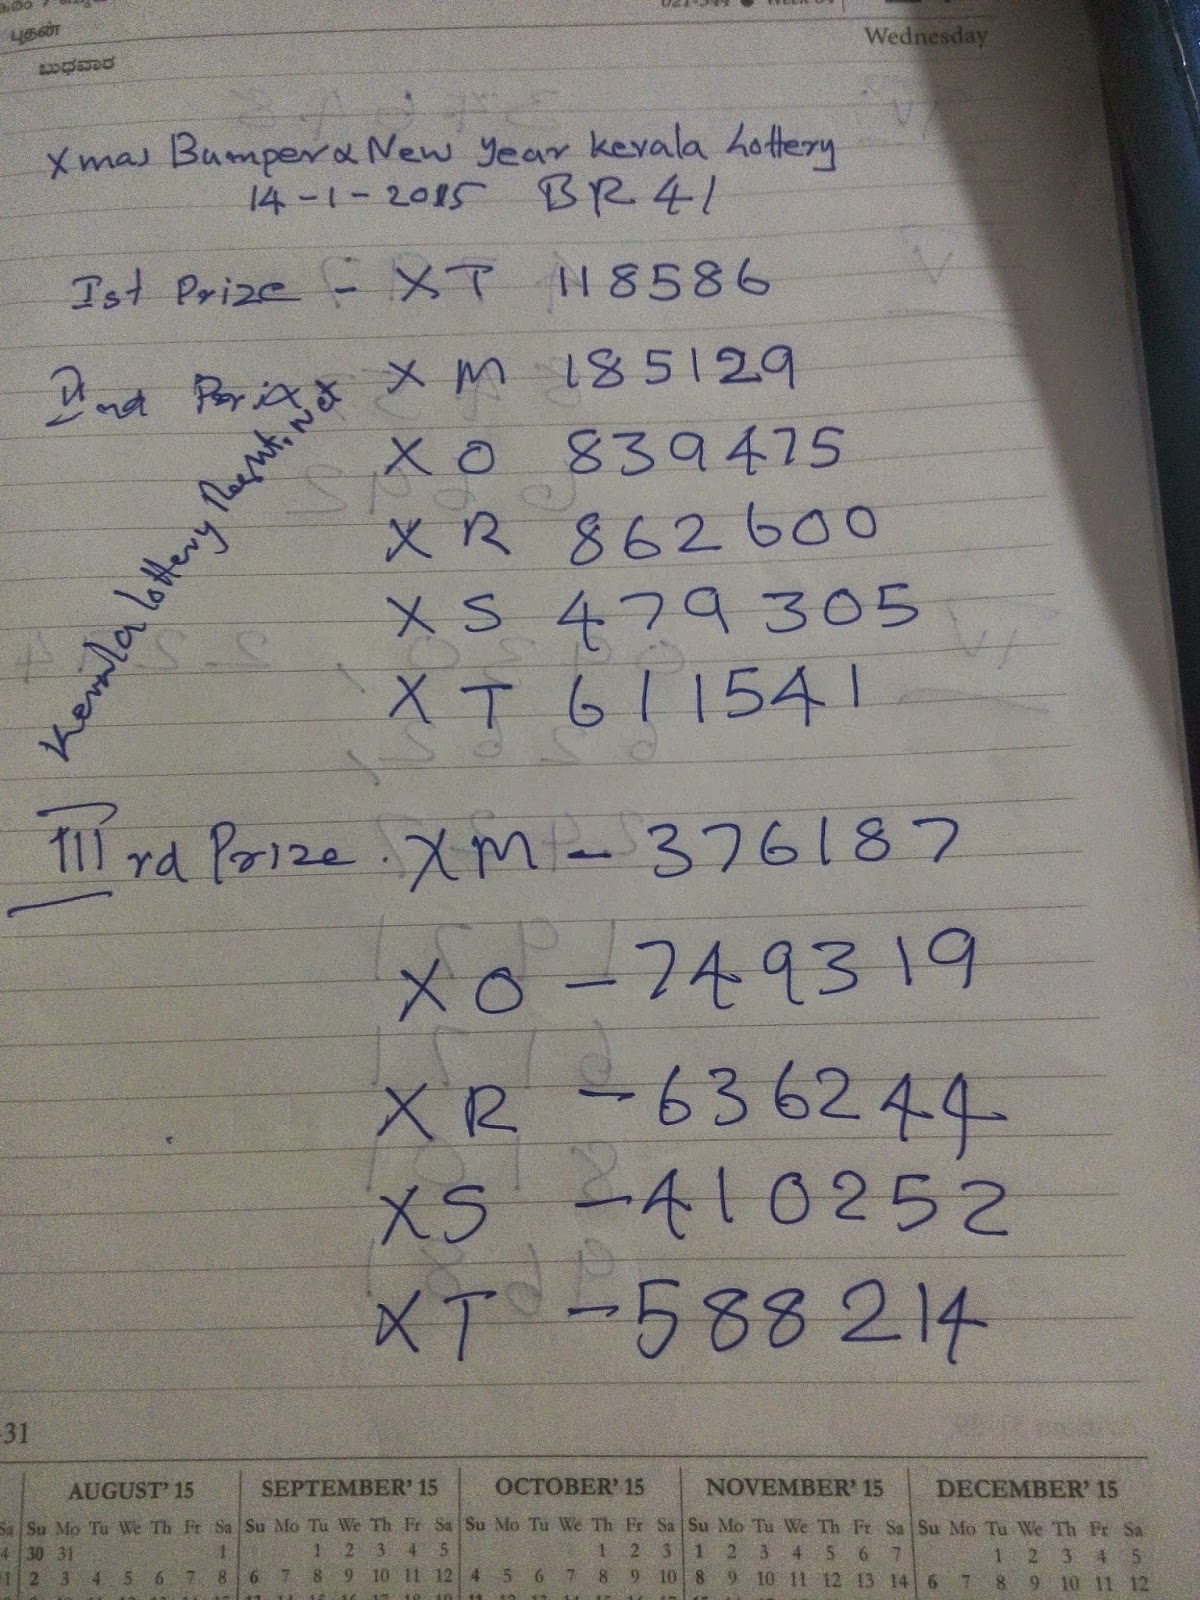 புதன்
ಬುಧವಾರ
Wednesday
Xmas Bumper & New Year Kerala Lottery
14-1-2015 BR 41
Ist Prize - XT 118586
IInd Prize XM 185129
XO 839475
XR 862600
XS 479305
XT 611541
Kerala lottery Result.Net
IIIrd Prize. XM - 376187
XO - 749319
XR - 636244
XS - 410252
XT - 588214
-31
AUGUST' 15 SEPTEMBER' 15 OCTOBER' 15 NOVEMBER' 15 DECEMBER' 15
Sa Su Mo Tu We Th Fr Sa Su Mo Tu We Th Fr Sa Su Mo Tu We Th Fr Sa Su Mo Tu We Th Fr Sa Su Mo Tu We Th Fr Sa
4 30 31 1 1 2 3 4 5 1 2 3 1 2 3 4 5 6 7 1 2 3 4 5
1 2 3 4 5 6 7 8 6 7 8 9 10 11 12 4 5 6 7 8 9 10 8 9 10 11 12 13 14 6 7 8 9 10 11 12